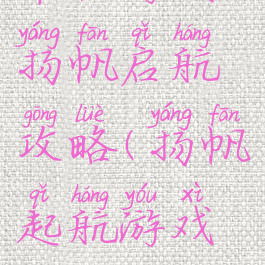 yáng fān qǐ háng
扬帆启航
gōng lüè yáng fān
攻略(扬帆
qǐ háng yóu xì
起航游戏